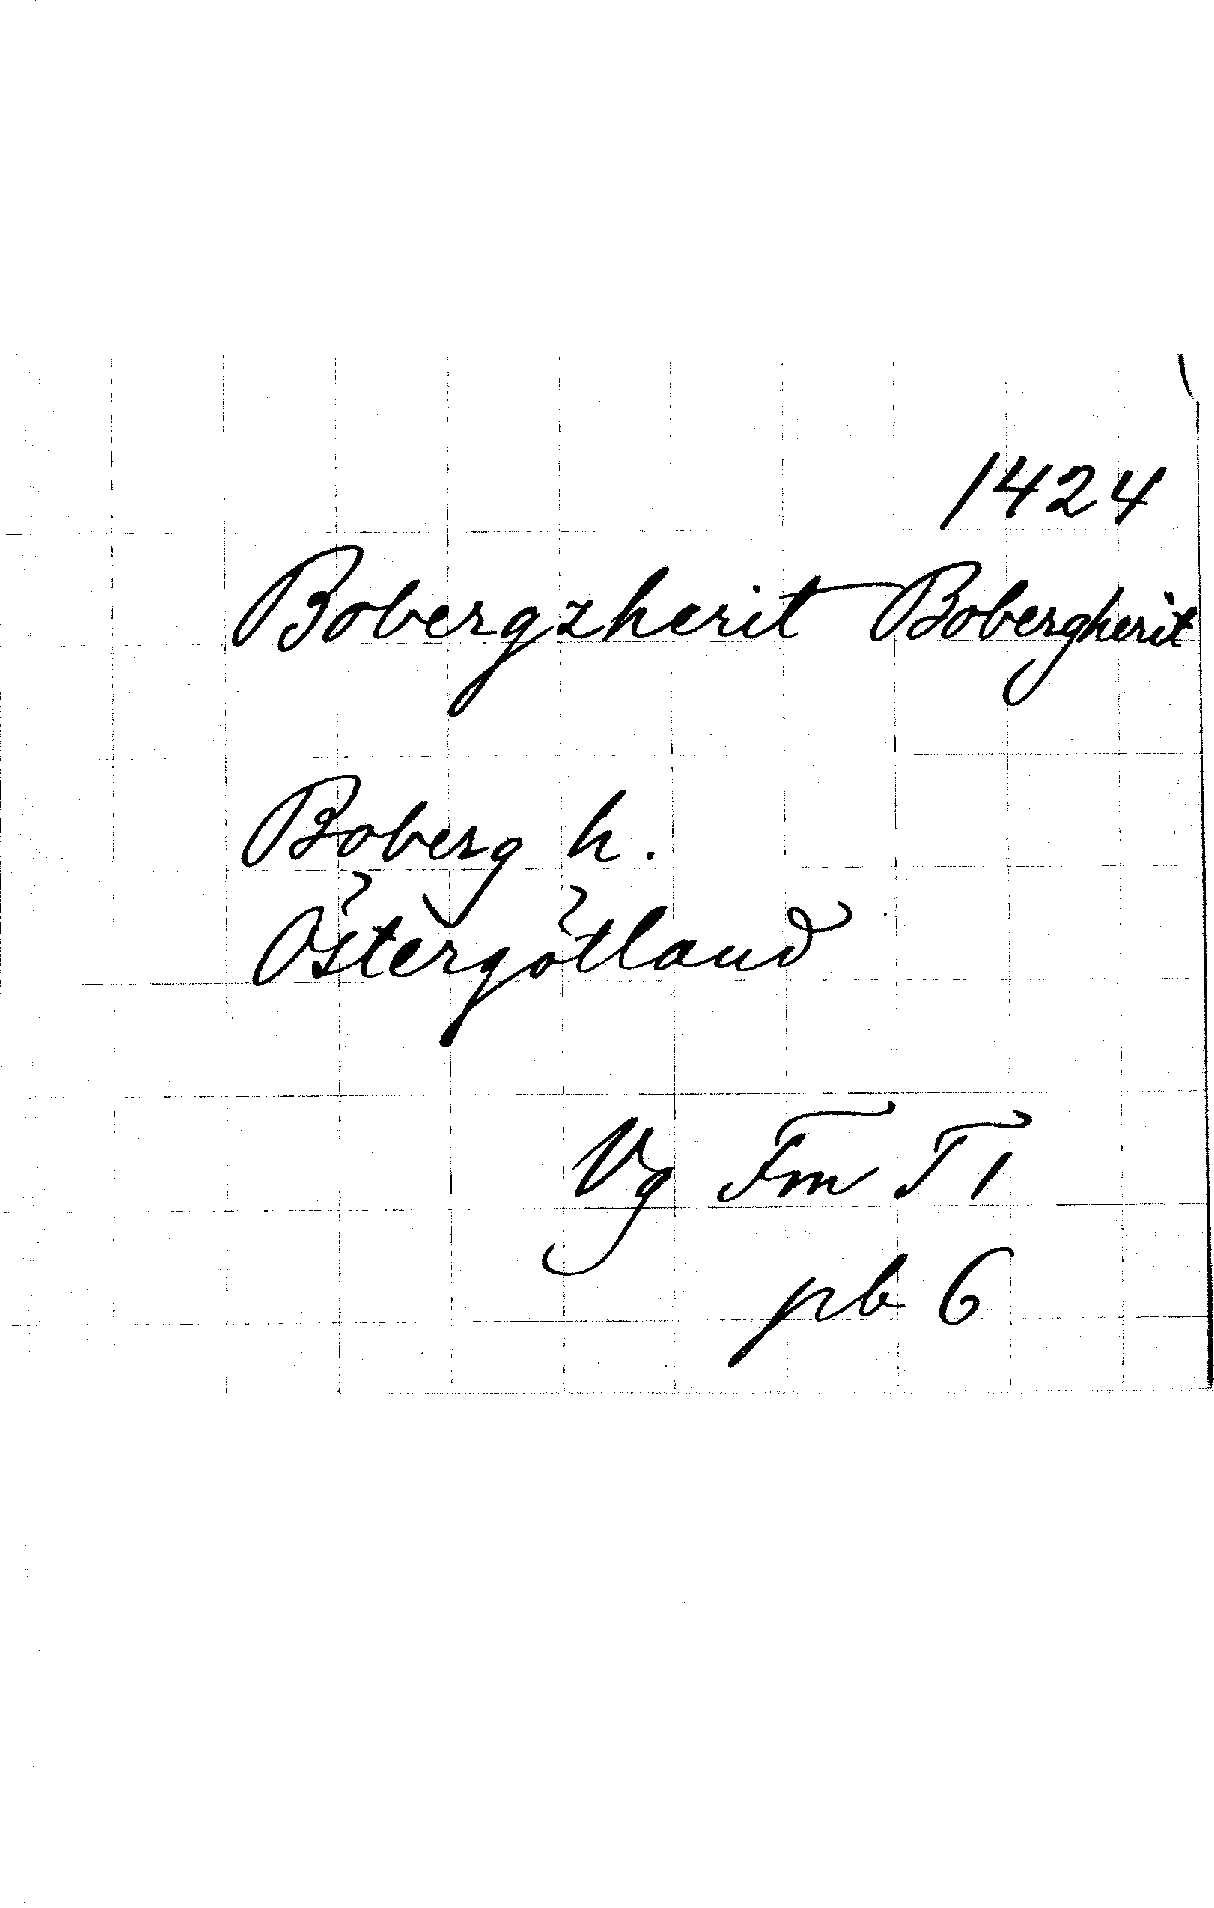 1424
Bobergzherit Bobergherit
Boberg h.
Östergötland
Vg Fm T 1
pb 6